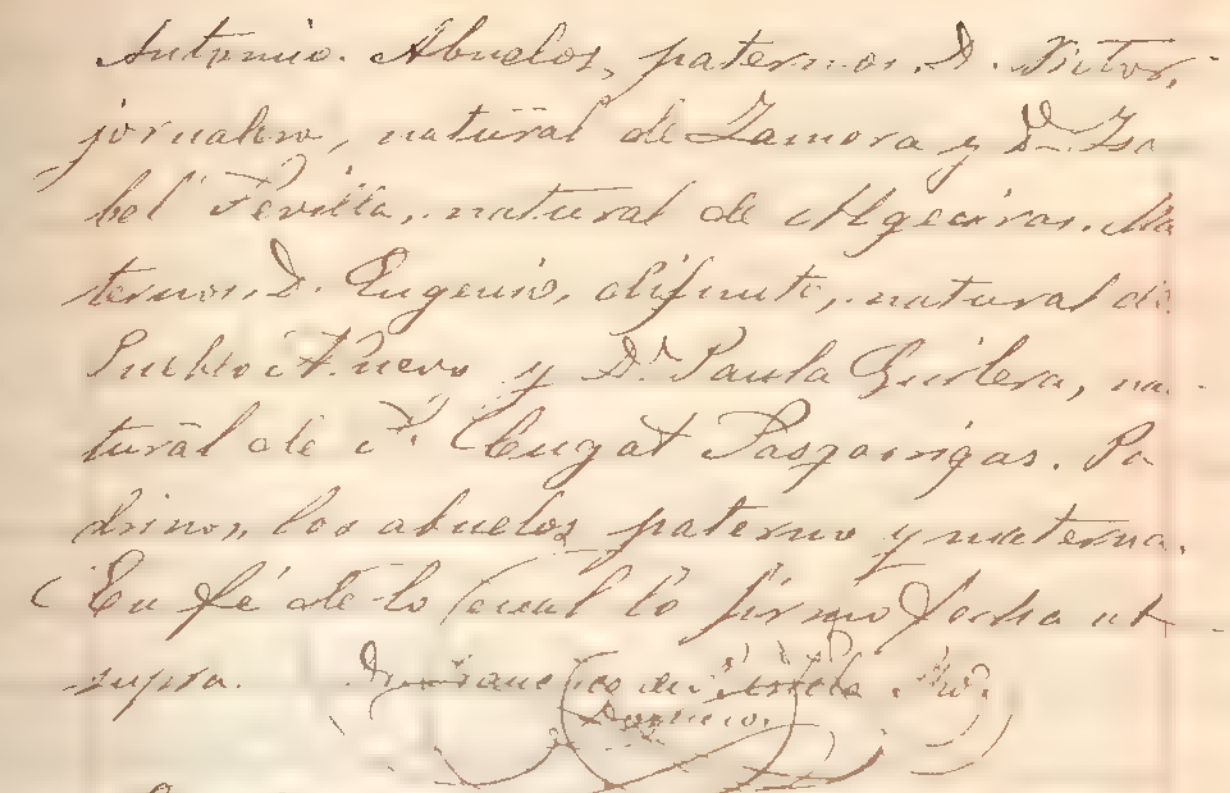 Antonio. Abuelos, paternos, D. Victor,
jornalero, natural de Zamora y Dª. Isa
bel Sevilla, natural de Algeciras. Ma
ternos, D. Eugenio, difunto, natural de
Pueblo Nuevo y Dª. Paula Guilera, na-
tural de S. Cugat Sasgarrigas. Pa
drinos, los abuelos paterno y materna.
En fé de lo cual lo firmo fecha ut
supra.